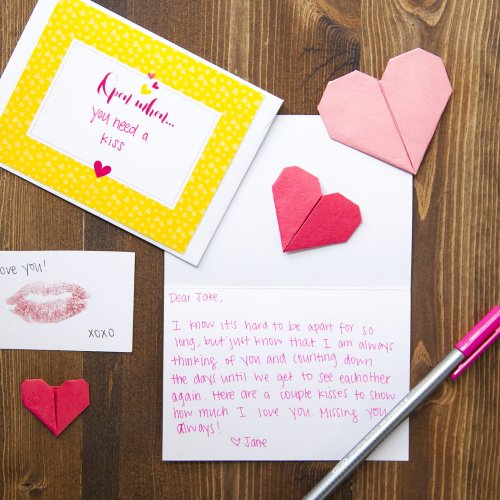 Open when...
you need a
kiss
ove you!
xoxo
Dear Jake,
I know it's hard to be apart for so
long, but just know that I am always
thinking of you and counting down
the days until we get to see eachother
again. Here are a couple kisses to show
how much I love you. Missing you
always!
♡ Jane